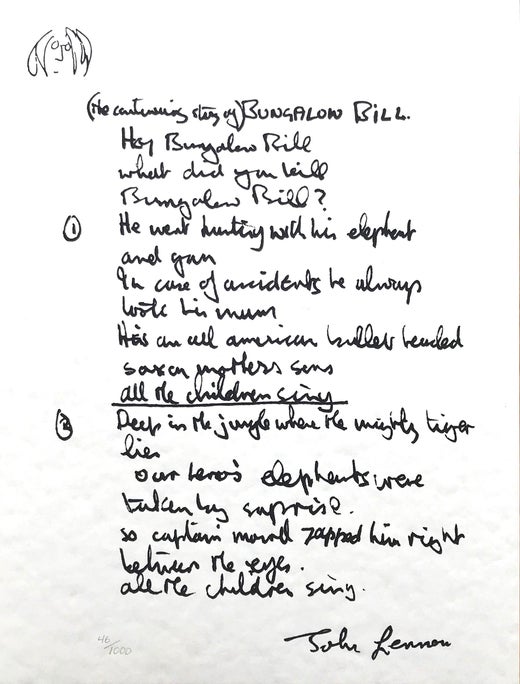 (the continuing story of) BUNGALOW BILL.
Hey Bungalow Bill
what did you kill
Bungalow Bill?
① He went hunting with his elephant
and gun
In case of accidents he always
took his mum
He's an all american bullet headed
saxon mothers sons
all the children sing
② Deep in the jungle where the mighty tiger
lies
our hero's elephants were
taken by suprise.
so captain marvel zapped him right
between the eyes.
all the children sing.
John Lennon
46/1000